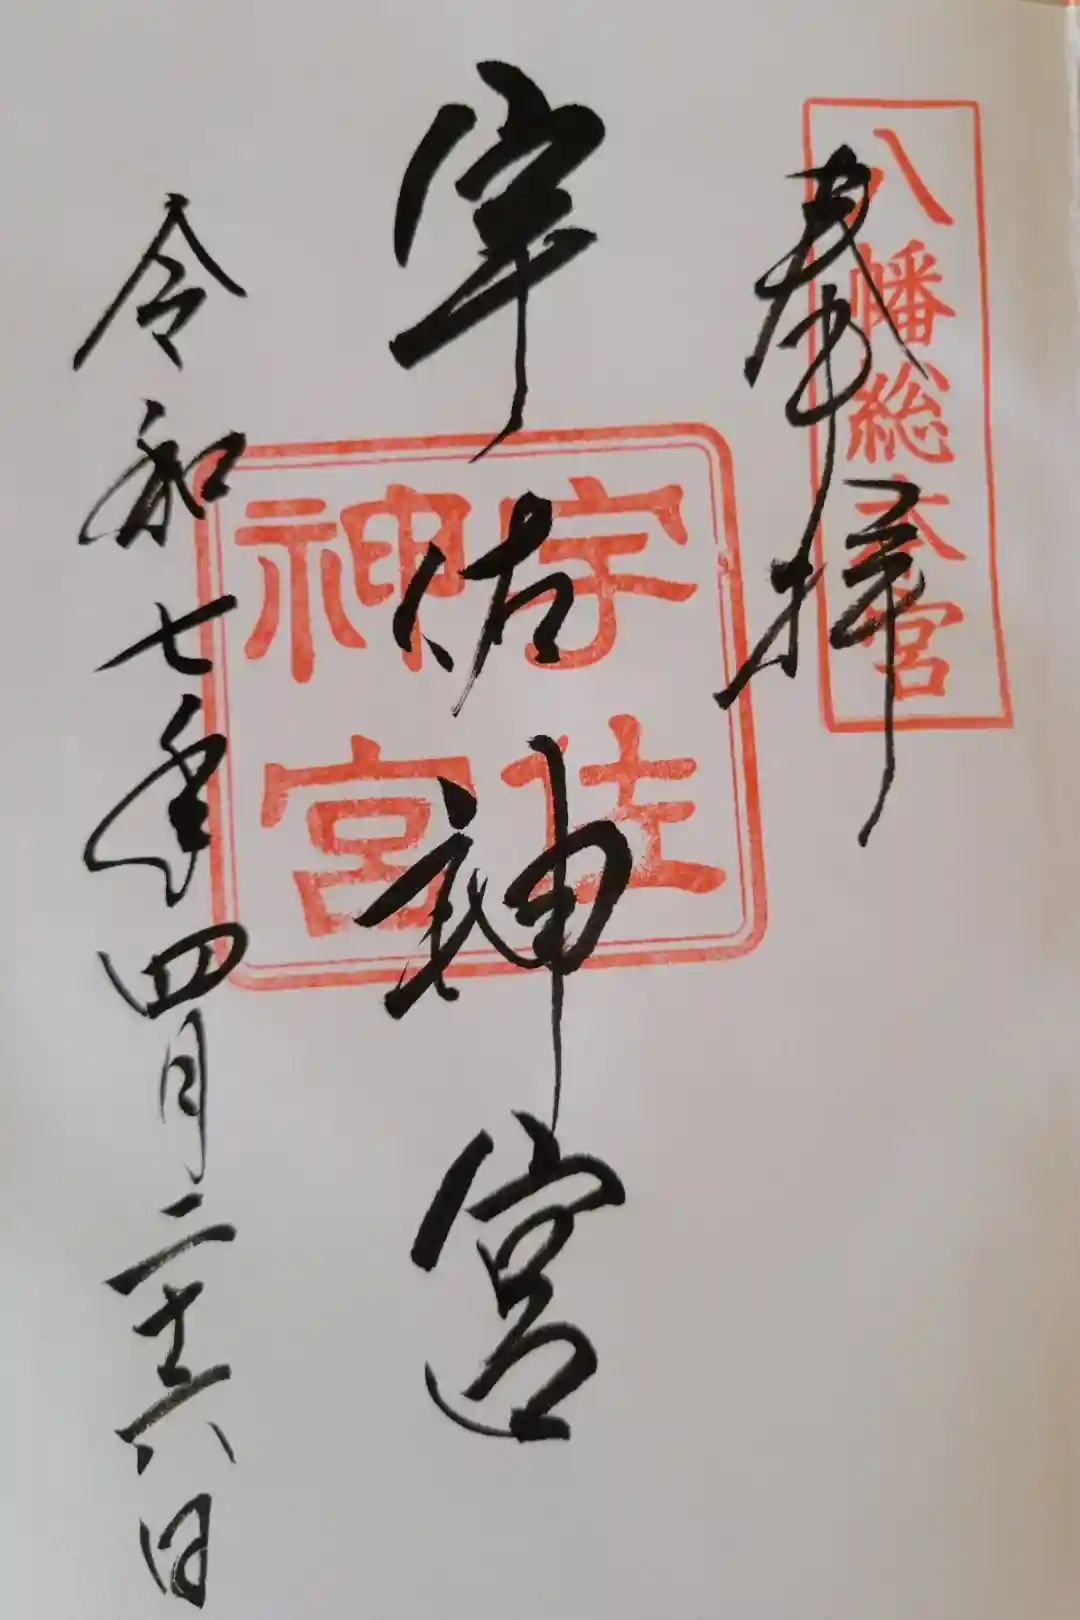 八幡総本宮
奉拝
宇佐神宮
宇佐
神宮
令和七年四月二十六日